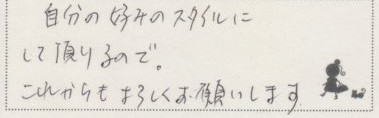 自分の好みのスタイルに
して頂けるので。
これからもよろしくお願いします